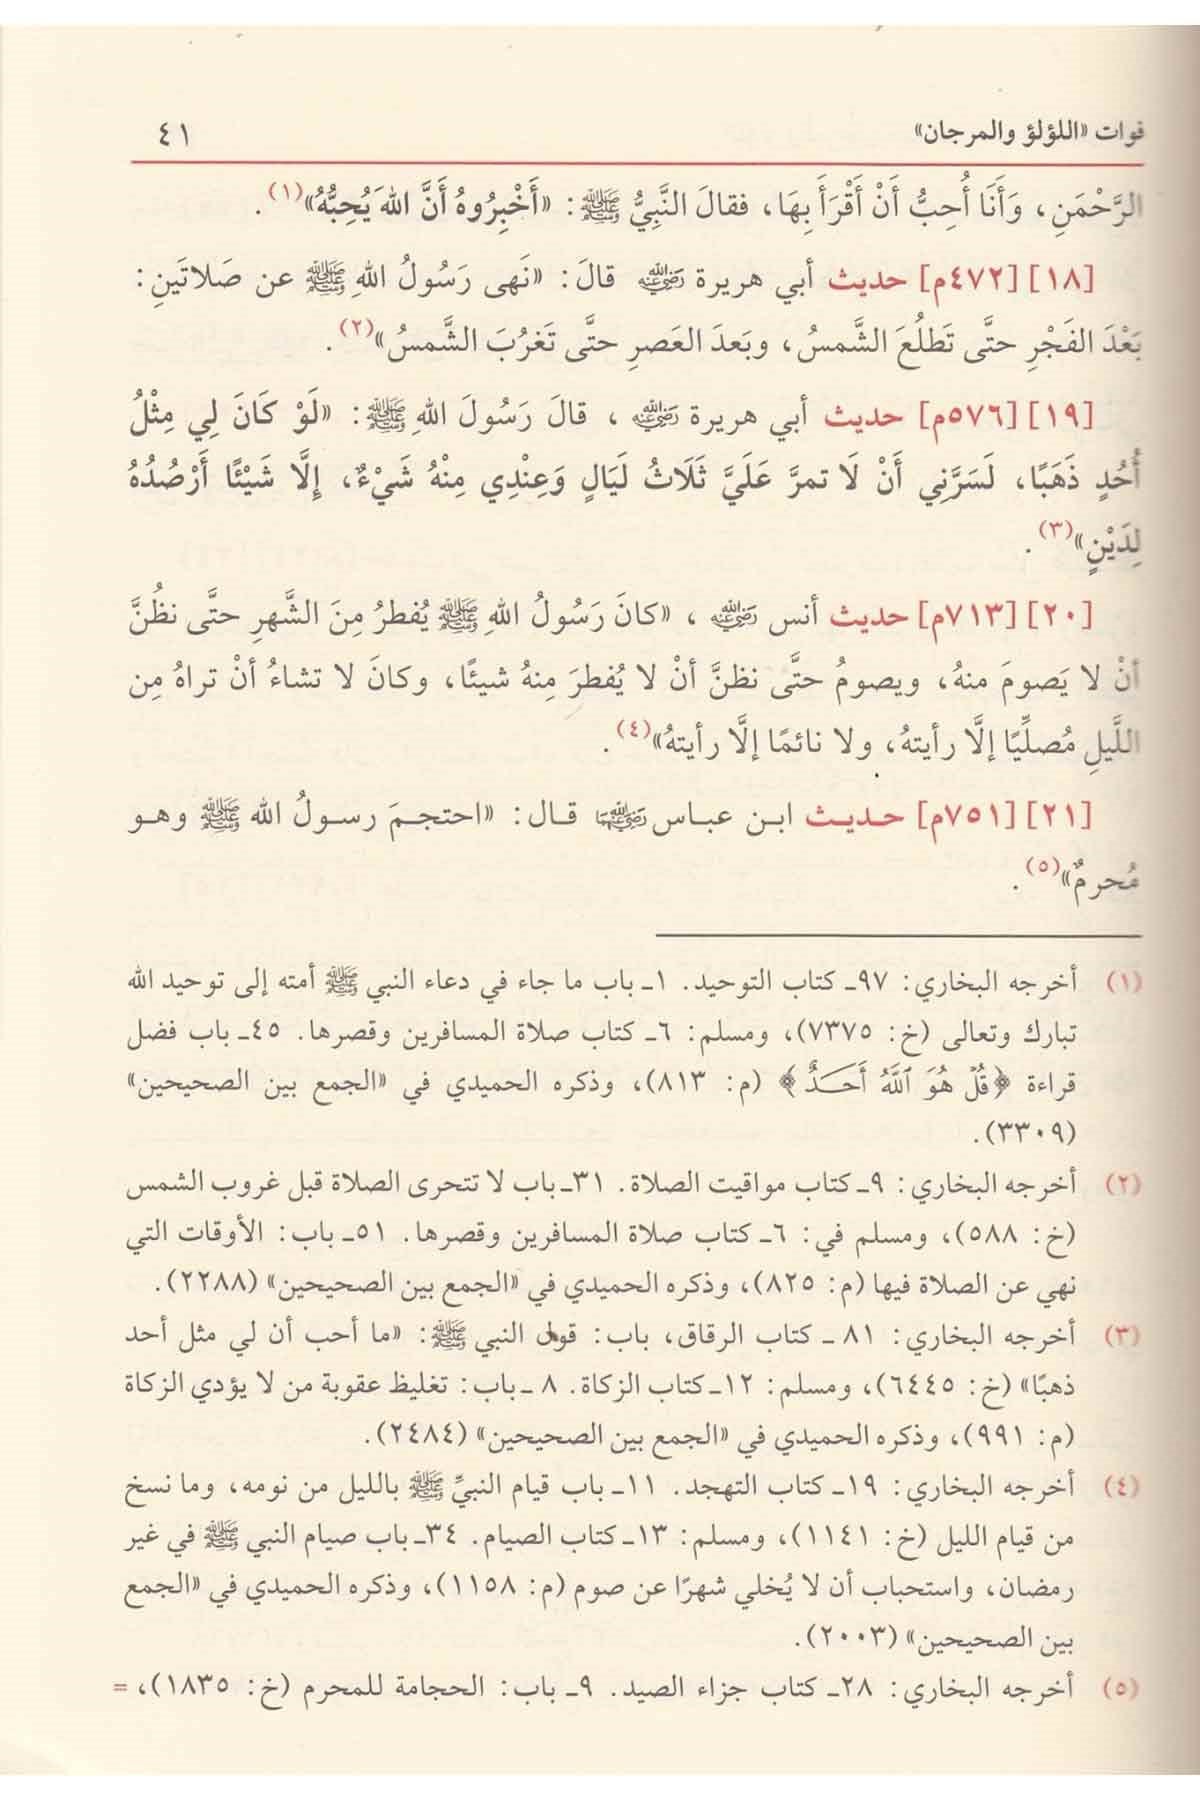 فوات «اللؤلؤ والمرجان» ٤١
الرَّحْمَنِ، وَأَنَا أُحِبُّ أَنْ أَقْرَأَ بِهَا، فقالَ النَّبِيُّ ﷺ: «أَخْبِرُوهُ أَنَّ اللهَ يُحِبُّهُ»(١).
[١٨] [٤٧٢م] حديث أبي هريرة رضي الله عنه قالَ: «نَهى رَسُولُ اللهِ ﷺ عن صَلاتَينِ:
بَعْدَ الفَجْرِ حتَّى تَطلُعَ الشَّمسُ، وبَعدَ العَصرِ حتَّى تَغرُبَ الشَّمسُ»(٢).
[١٩] [٥٧٦م] حديث أبي هريرة رضي الله عنه، قالَ رَسُولَ اللهِ ﷺ: «لَوْ كَانَ لِي مِثْلُ
أُحُدٍ ذَهَبًا، لَسَرَّنِي أَنْ لَا تمرَّ عَلَيَّ ثَلَاثُ لَيَالٍ وَعِنْدِي مِنْهُ شَيْءٌ، إِلَّا شَيْئًا أَرْصُدُهُ
لِدَيْنٍ»(٣).
[٢٠] [٧١٣م] حديث أنس رضي الله عنه، «كانَ رَسُولُ اللهِ ﷺ يُفطرُ مِنَ الشَّهرِ حتَّى نظُنَّ
أنْ لا يَصومَ منهُ، ويصومُ حتَّى نظنَّ أنْ لا يُفطرَ مِنهُ شيئًا، وكانَ لا تشاءُ أنْ تراهُ مِن
اللَّيلِ مُصلِّيًا إلَّا رأيتهُ، ولا نائمًا إلَّا رأيتهُ»(٤).
[٢١] [٧٥١م] حديث ابن عباس رضي الله عنهما قال: «احتجمَ رسولُ الله ﷺ وهو
مُحرمٌ»(٥).
(١) أخرجه البخاري: ٩٧ـ كتاب التوحيد. ١ـ باب ما جاء في دعاء النبي ﷺ أمته إلى توحيد الله
تبارك وتعالى (خ: ٧٣٧٥)، ومسلم: ٦ـ كتاب صلاة المسافرين وقصرها. ٤٥ـ باب فضل
قراءة ﴿قُلْ هُوَ ٱللَّهُ أَحَدٌ﴾ (م: ٨١٣)، وذكره الحميدي في «الجمع بين الصحيحين»
(٣٣٠٩).
(٢) أخرجه البخاري: ٩ـ كتاب مواقيت الصلاة. ٣١ـ باب لا تتحرى الصلاة قبل غروب الشمس
(خ: ٥٨٨)، ومسلم في: ٦ـ كتاب صلاة المسافرين وقصرها. ٥١ـ باب: الأوقات التي
نهي عن الصلاة فيها (م: ٨٢٥)، وذكره الحميدي في «الجمع بين الصحيحين» (٢٢٨٨).
(٣) أخرجه البخاري: ٨١ ـ كتاب الرقاق، باب: قول النبي ﷺ: «ما أحب أن لي مثل أحد
ذهبًا» (خ: ٦٤٤٥)، ومسلم: ١٢ـ كتاب الزكاة. ٨ ـ باب: تغليظ عقوبة من لا يؤدي الزكاة
(م: ٩٩١)، وذكره الحميدي في «الجمع بين الصحيحين» (٢٤٨٤).
(٤) أخرجه البخاري: ١٩ـ كتاب التهجد. ١١ـ باب قيام النبيِّ ﷺ بالليل من نومه، وما نسخ
من قيام الليل (خ: ١١٤١)، ومسلم: ١٣ـ كتاب الصيام. ٣٤ـ باب صيام النبي ﷺ في غير
رمضان، واستحباب أن لا يُخلي شهرًا عن صوم (م: ١١٥٨)، وذكره الحميدي في «الجمع
بين الصحيحين» (٢٠٠٣).
(٥) أخرجه البخاري: ٢٨ـ كتاب جزاء الصيد. ٩ـ باب: الحجامة للمحرم (خ: ١٨٣٥)، =